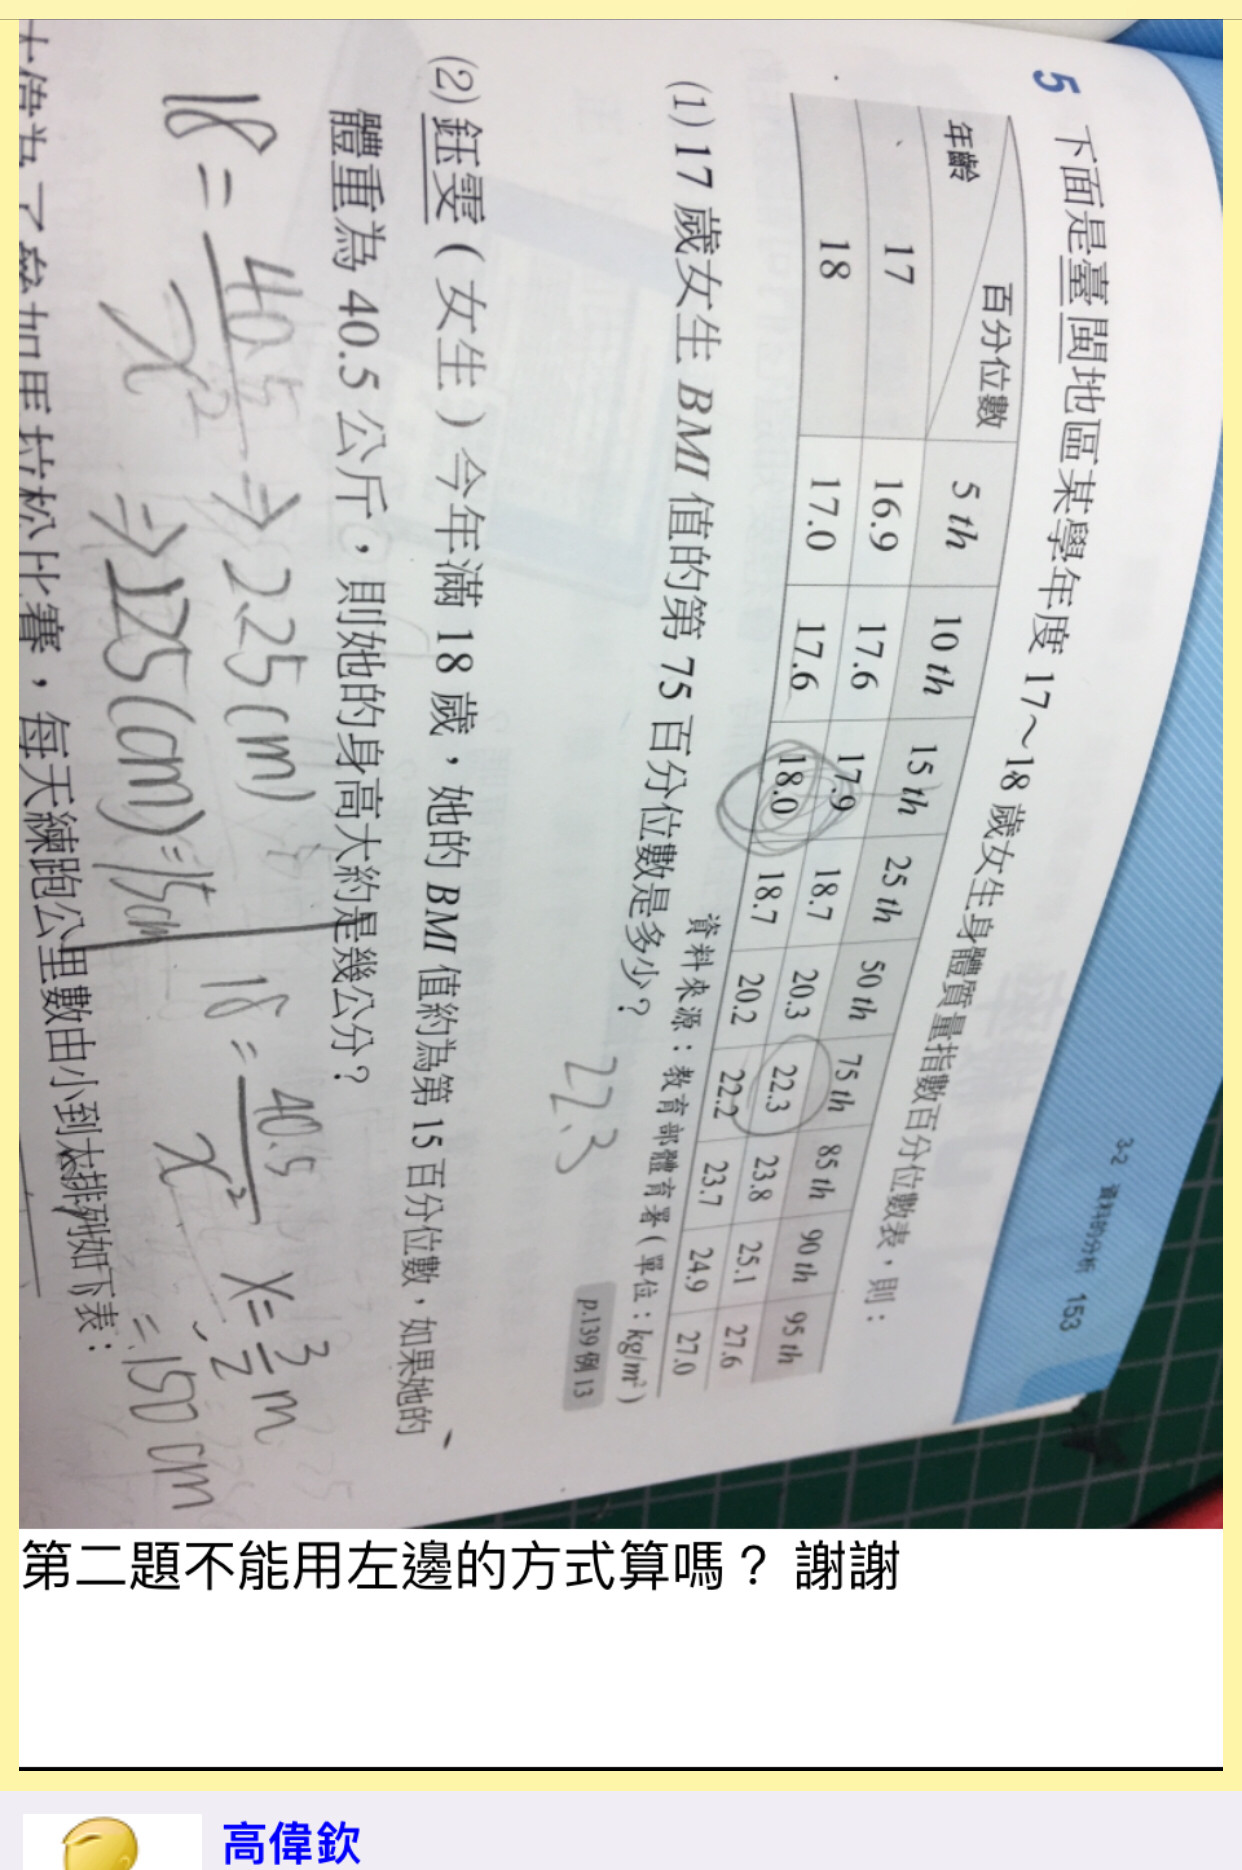 3-2 資料的分析 153
5 下面是臺閩地區某學年度 17~18 歲女生身體質量指數百分位數表，則：
百分位數 5 th 10 th 15 th 25 th 50 th 75 th 85 th 90 th 95 th
年齡
17 16.9 17.6 17.9 18.7 20.3 22.3 23.8 25.1 27.6
18 17.0 17.6 18.0 18.7 20.2 22.2 23.7 24.9 27.0
資料來源：教育部體育署（單位：kg/m²）
(1) 17 歲女生 BMI 值的第 75 百分位數是多少？
p.139 例 13
22.3
(2) 鈺雯（女生）今年滿 18 歲，她的 BMI 值約為第 15 百分位數，如果她的
體重為 40.5 公斤，則她的身高大約是幾公分？
18 = 40.5 / x² ⇒ 2.25 (m)
⇒ 225 (cm) = 15 cm
18 = 40.5 / x² x = 3/2 m
= 150 cm
每天練跑公里數由小到大排列如下表：
第二題不能用左邊的方式算嗎？ 謝謝
高偉欽